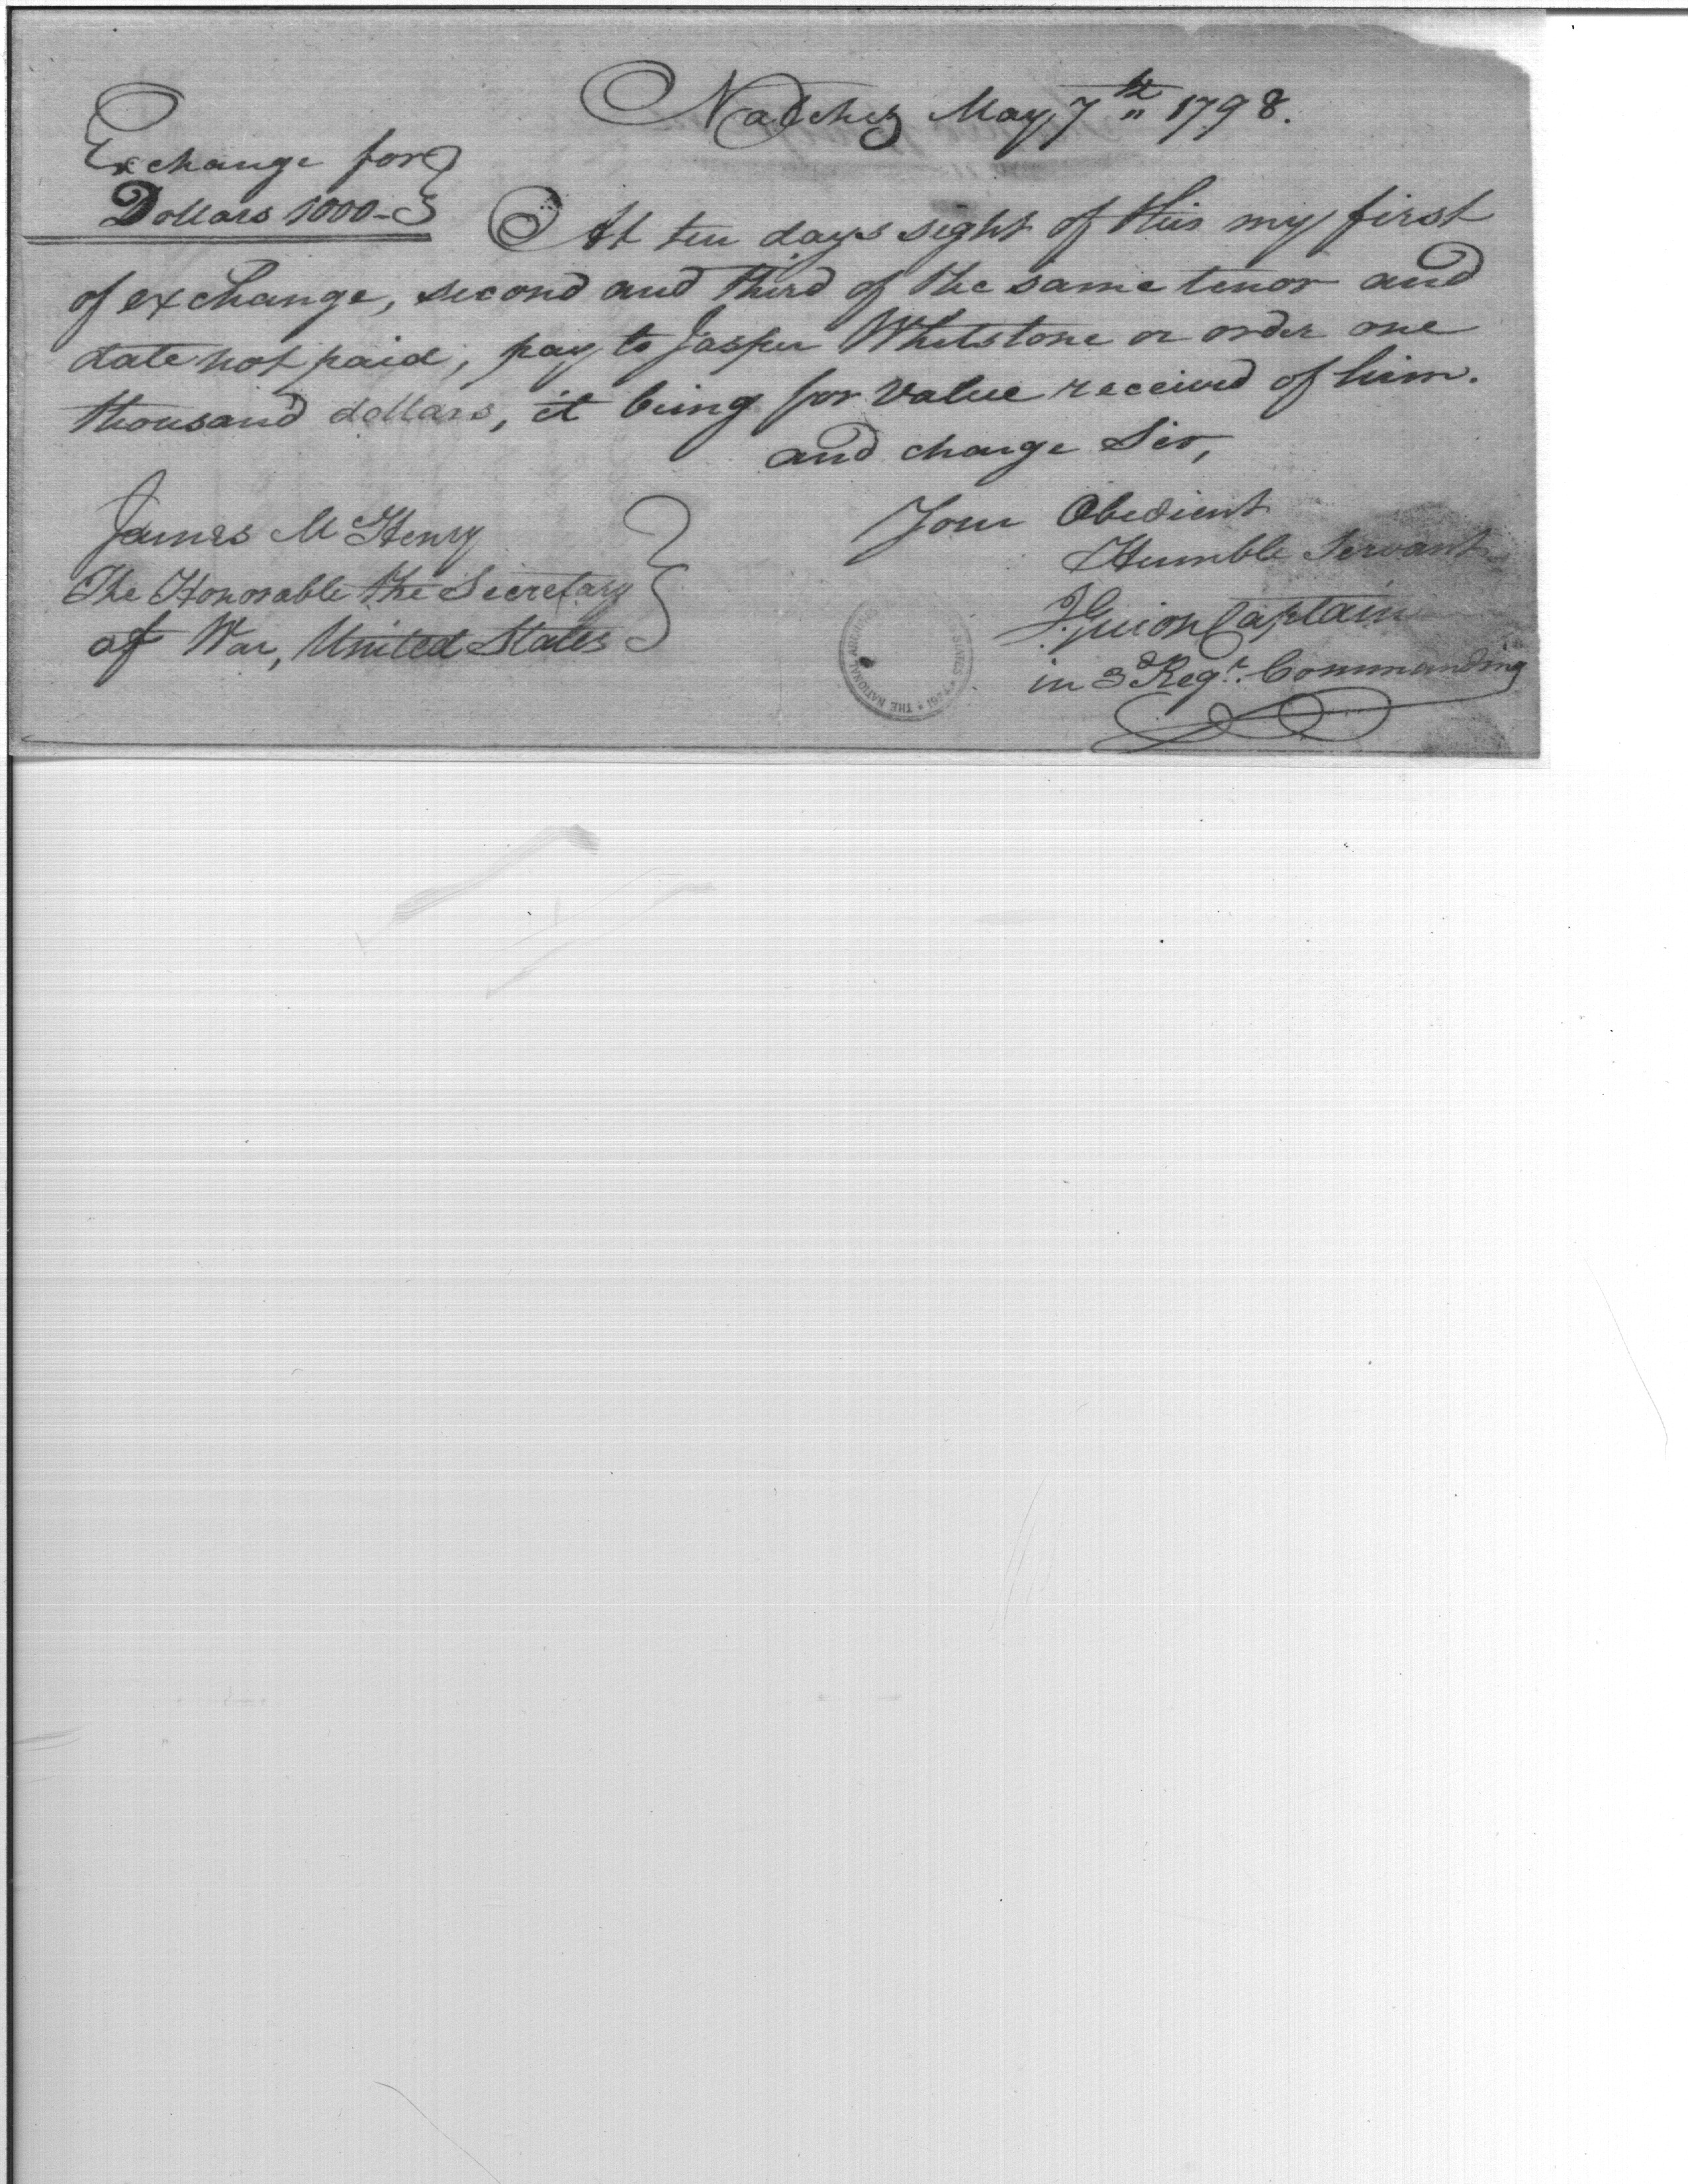 Natchez May 7th 1798.
Exchange for
Dollars 1000-
At ten days sight of this my first
of exchange, second and third of the same tenor and
date not paid, pay to Jasper Whetstone or order one
thousand dollars, it being for value received of him.
and charge Sir,
Your Obedient
Humble Servant
I. Guion Captain
in 3d Regt. Commanding
James McHenry
The Honorable the Secretary
of War, United States
THE NATIONAL STATES